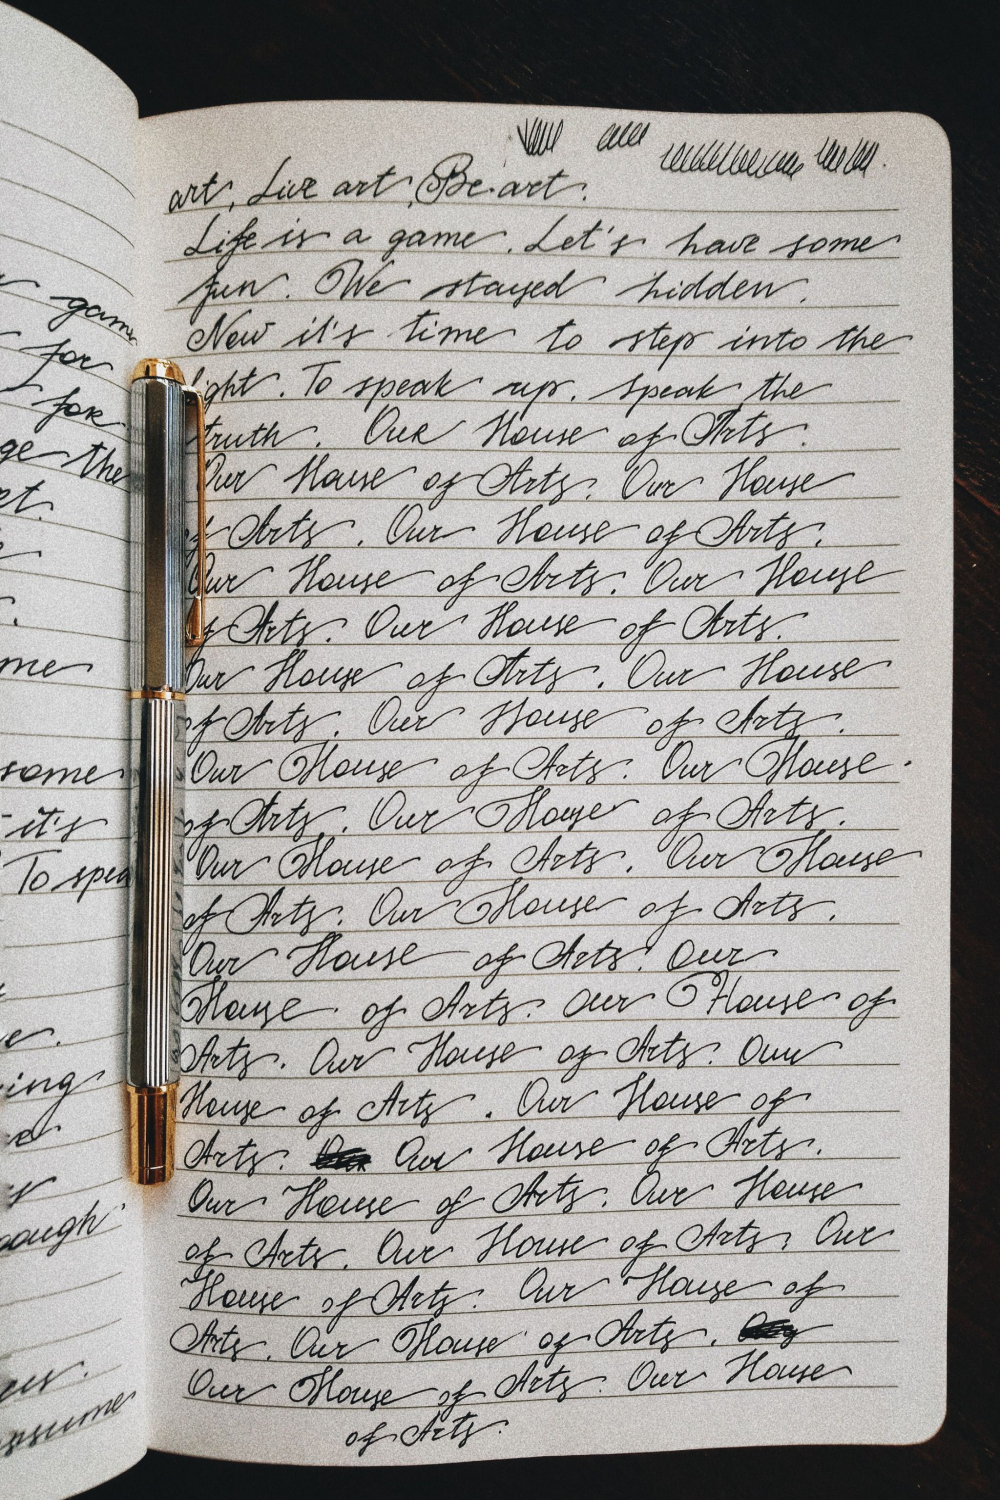 game
for
for
ge the
me
some
it's
To spea
ing
ough
art, Live art, Be art.
Life is a game. Let's have some
fun. We stayed hidden.
Now it's time to step into the
light. To speak up. Speak the
truth. Our House of Arts.
Our House of Arts. Our House
of Arts. Our House of Arts.
Our House of Arts. Our House
of Arts. Our House of Arts.
Our House of Arts. Our House
of Arts. Our House of Arts.
Our House of Arts. Our House.
of Arts. Our House of Arts.
Our House of Arts. Our House
of Arts. Our House of Arts.
Our House of Arts. Our
House of Arts. Our House of
Arts. Our House of Arts. Our
House of Arts. Our House of
Arts. Our House of Arts.
Our House of Arts. Our House
of Arts. Our House of Arts. Our
House of Arts. Our House of
Arts. Our House of Arts.
Our House of Arts. Our House
of Arts.